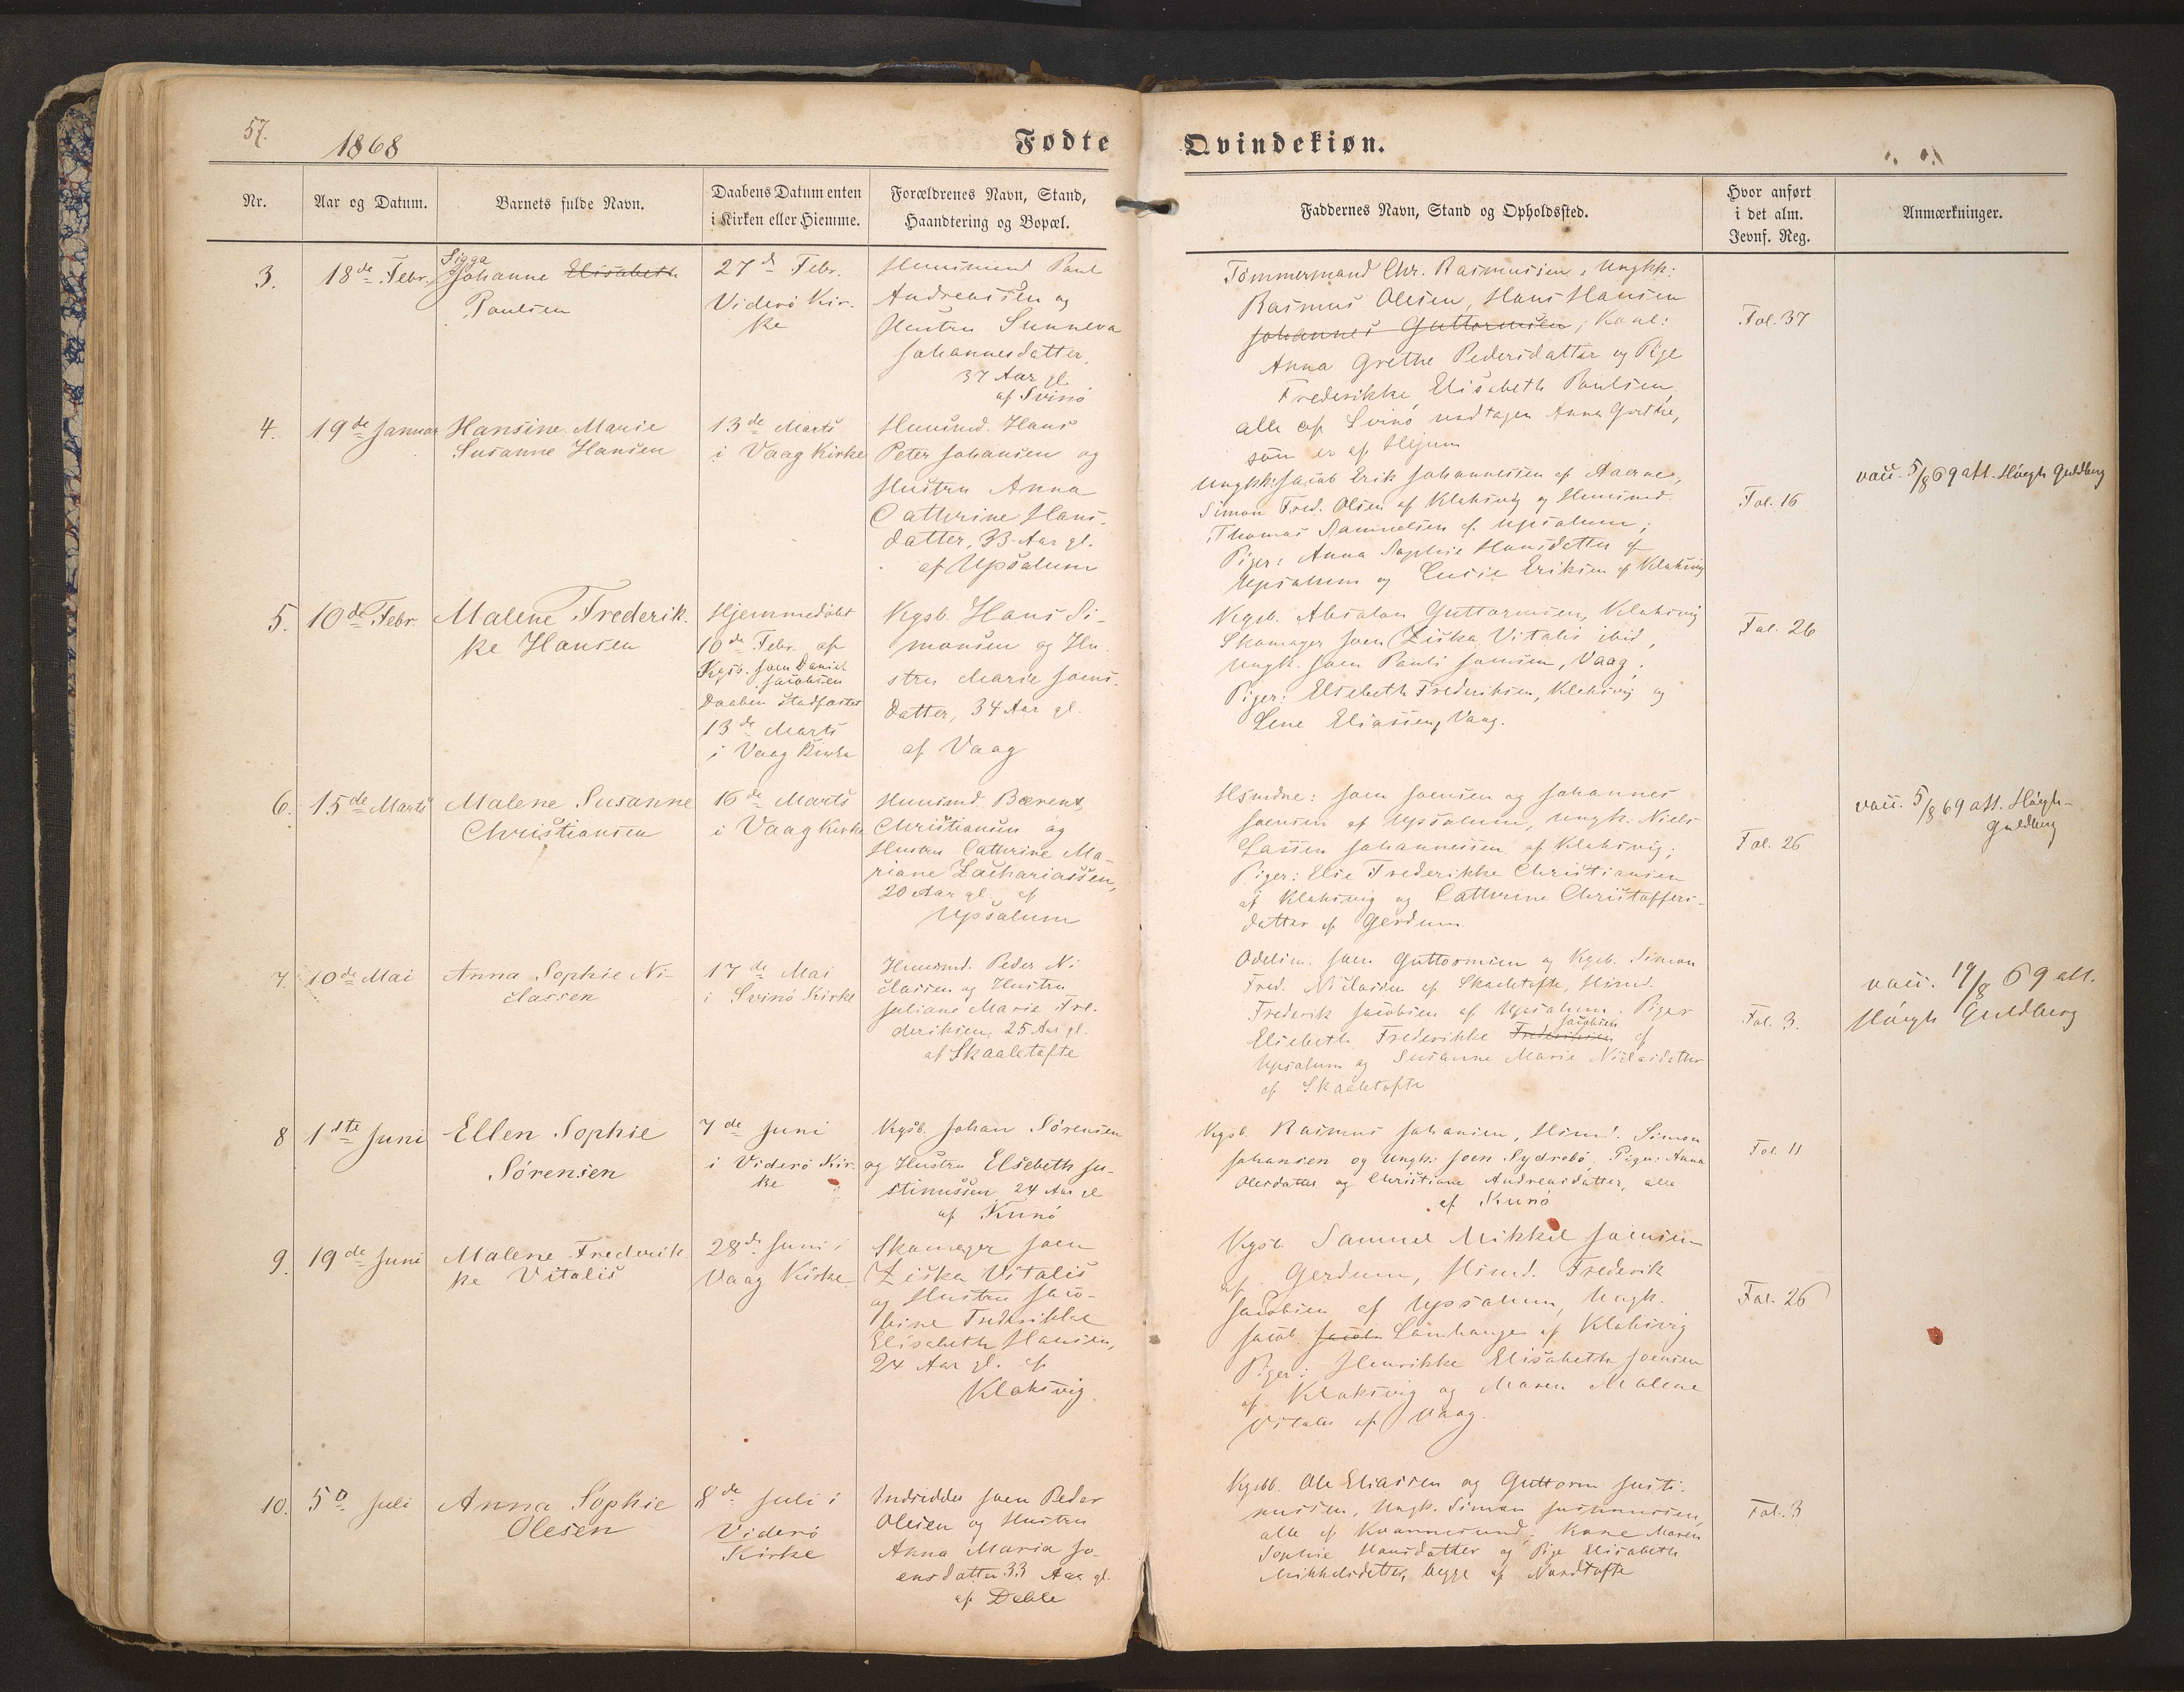 57.
1868
Fødte
Qvindekiøn.
Nr.
Aar og Datum.
Barnets fulde Navn.
Daabens Datum enten
i Kirken eller Hiemme.
Forældrenes Navn, Stand,
Haandtering og Bopæl.
Faddernes Navn, Stand og Opholdssted.
Hvor anført
i det alm.
Jevnf. Reg.
Anmærkninger.
3.
18de Febr.
Sigga
Johanne Elisabeth
Paulsen
27d Febr.
Viderö Kir-
ke
Huusmand Paul
Andreassen og
Hustru Sunneva
Johannesdatter,
37 Aar gl.
af Svinö
Tömmermand Chr. Rasmussen, Ungkk:
Rasmus Olesen, Hans Hansen
Johannes Guttormsen; Kone:
Anna Grethe Pedersdatter og Pige
Frederikke Elisabeth Poulsen,
alle af Svinö undtagen Anna Grethe,
som er af
Fol. 37
4.
19de Januar
Hansine Marie
Susanne Hansen
13de Marts
i Vaag Kirke
Huusmd. Hans
Peter Johansen og
Hustru Anna
Cathrine Hans-
datter, 33 Aar gl.
af Upsalum
Ungkk: Jacob Erik Johannessen af
Simon Fred. Olsen af Klaksvig og Huusmd.
Thomas Samuelsen af Upsalum;
Piger: Anna Sophie Hansdatter af
Upsalum og Lusie Eriksen af Klaksvig
Fol. 16
vacc. 5/8 69 att. Höegh Guldberg
5.
10de Febr.
Malene Frederik-
ke Hansen
Hjemmedöbt
10de Febr. af
Kgsb. Joen Daniel
Jacobsen
Daaben stadfæstet
13de Marts
i Vaag Kirke
Kgsb. Hans Si-
monsen og Hu-
stru Marie Joens-
datter, 34 Aar gl.
af Vaag
Kgsb. Absalon Guttormsen, Klaksvig
Skomager Joen Ziska Vitalis ibid,
Ungk. Joen Pauli Joensen, Vaag;
Piger: Elsebeth Frederiksen, Klaksvig og
Lene Eliassen, Vaag.
Fol. 26
6.
15de Marts
Malene Susanne
Christiansen
16de Marts
i Vaag Kirke
Huusmd. Bærent
Christiansen og
Hustru Cathrine Ma-
riane Zachariassen,
20 Aar gl. af
Upsalum
Hsmdne: Joen Joensen og Johannes
Joensen af Upsalum, Ungk. Niels
Lassen Johannessen af Klaksvig;
Piger: Elsie Frederikke Christiansen
af Klaksvig og Cathrine Christoffers-
datter af Gerdum
Fol. 26
vacc. 5/8 69 att. Höegh-
Guldberg
7.
10de Mai
Anna Sophie Ni-
classen
17de Mai
i Svinö Kirke
Huusmd. Peder Ni-
classen og Hustru
Juliane Marie Fre-
deriksen, 25 Aar gl.
af Skaaletofte
Odelsm. Joen Guttormsen og Kgsb. Simon
Fred. Niclassen af Skaaletofte, Hsmd.
Frederik Jacobsen af Upsalum. Piger
Elsebeth Frederikke Frederiksen Jacobsen af
Upsalum og Susanne Marie Niclasdatter
af Skaaletofte
Fol. 3.
vacc. 19/8 69 att.
Höegh Guldberg
8
1ste Juni
Ellen Sophie
Sörensen
7de Juni
i Viderö Kir-
ke
Kgsb. Johan Sörensen
og Hustru Elsebeth Ju-
stinussen, 24 Aar gl
af Kunö
Kgsb. Rasmus Johansen, Hsmd. Simon
Johansen og Ungk: Joen Sydrebö, Piger: Anna
Olesdatter og Christiane Andreasdatter, alle
af Kunö
Fol. 11
9.
19de Juni
Malene Frederik-
ke Vitalis
28de Juni i
Vaag Kirke
Skomager Joen
Ziska Vitalis
og Hustru Jaco-
bine Frederikke
Elisabeth Hansen,
24 Aar gl. af
Klaksvig.
Kgsb. Samuel Mikkel Joensen
af Gerdum, Hsmd. Frederik
Jacobsen af Upsalum, Ungk.
Jacob Jacob Lamhauge af Klaksvig
Piger: Henrikke Elisabeth Joensen
af Klaksvig og Maren Malene
Vitalis af Vaag.
Fol. 26
10.
5d Juli
Anna Sophie
Olesen
8de Juli i
Viderö
Kirke
Indsidder Joen Peder
Olesen og Hustru
Anna Maria Jo-
ensdatter 33 Aar gl.
af Deble
Kgsbb. Ole Eliassen og Guttorm Justi-
nussen, Ungk. Simon Justinussen,
alle af Kvannesund; Kone Maren
Sophie Hansdatter og Pige Elisabeth
Mikkelsdatter, begge af Nordtofte
Fol. 3